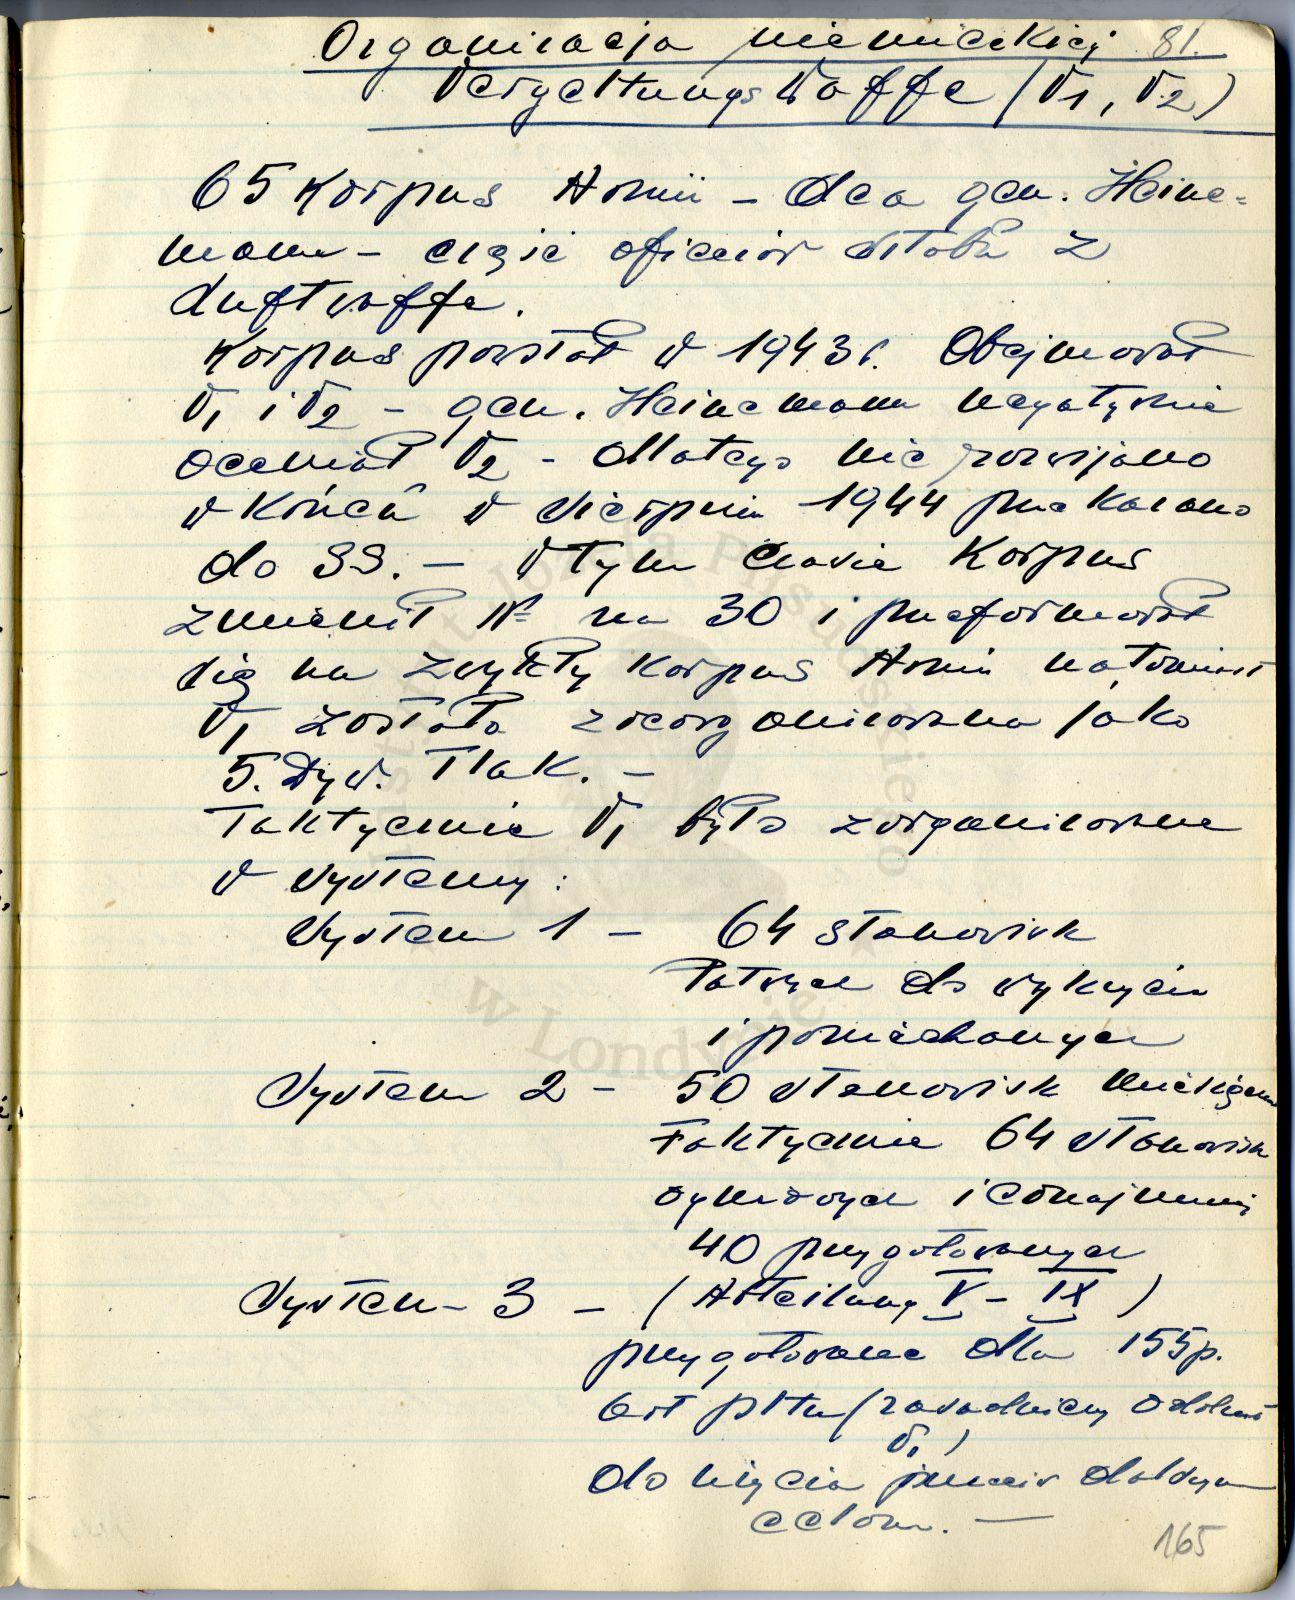 Organizacja niemieckiej 81.
Vergeltungs Waffe (V1, V2)
65 Korpus Armii – dca gen. Heine=
mann – część oficerów sztabu z
Luftwaffe.
Korpus powstał w 1943 r. Obejmował
V1 i V2 – gen. Heinemann negatywnie
oceniał V2 – dlatego nie rozwijano
w końcu w sierpniu 1944 przekazano
do SS. – W tym czasie Korpus
zmienił № na 30 i przeformował
się na zwykły Korpus Armii natomiast
V1 została zreorganizowana jako
5. Dyw. Flak. –
Taktycznie V1 była zorganizowana
w systemy:
System 1 – 64 stanowisk
łatwych do wykrycia
i poniechanych
System 2 – 50 stanowisk
Faktycznie 64 stanowisk
ogniowych i conajmniej
40 przygotowanych
System – 3 – (Abteilung V – IX)
przygotowane dla 155 p.
art pltn (zasadniczy oddział
V1)
do użycia przeciw dalszym
celom. –
165
Instytut Józefa Piłsudskiego
w Londynie